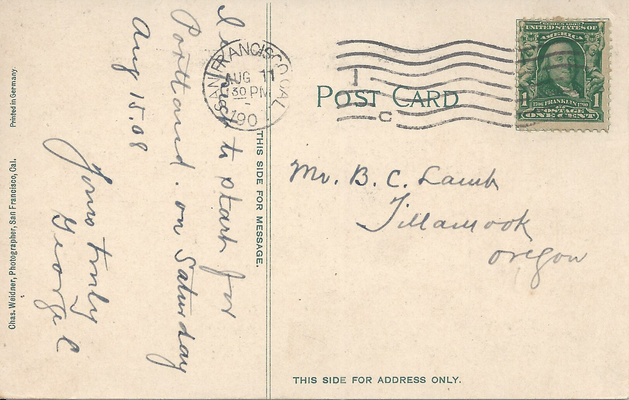 I expect to start for
Portland. on Saturday
Aug 15.08
Yours truly
George C
THIS SIDE FOR MESSAGE.
Chas. Weidner, Photographer, San Francisco, Cal.
Printed in Germany.
SAN FRANCISCO, CAL.
AUG 11
30 PM
190
POST CARD
SERIES 1902
UNITED STATES OF
AMERICA
1 1706 FRANKLIN 1790 1
POSTAGE
ONE CENT
1
C
Mr. B. C. Lamb
Tillamook
Oregon
THIS SIDE FOR ADDRESS ONLY.